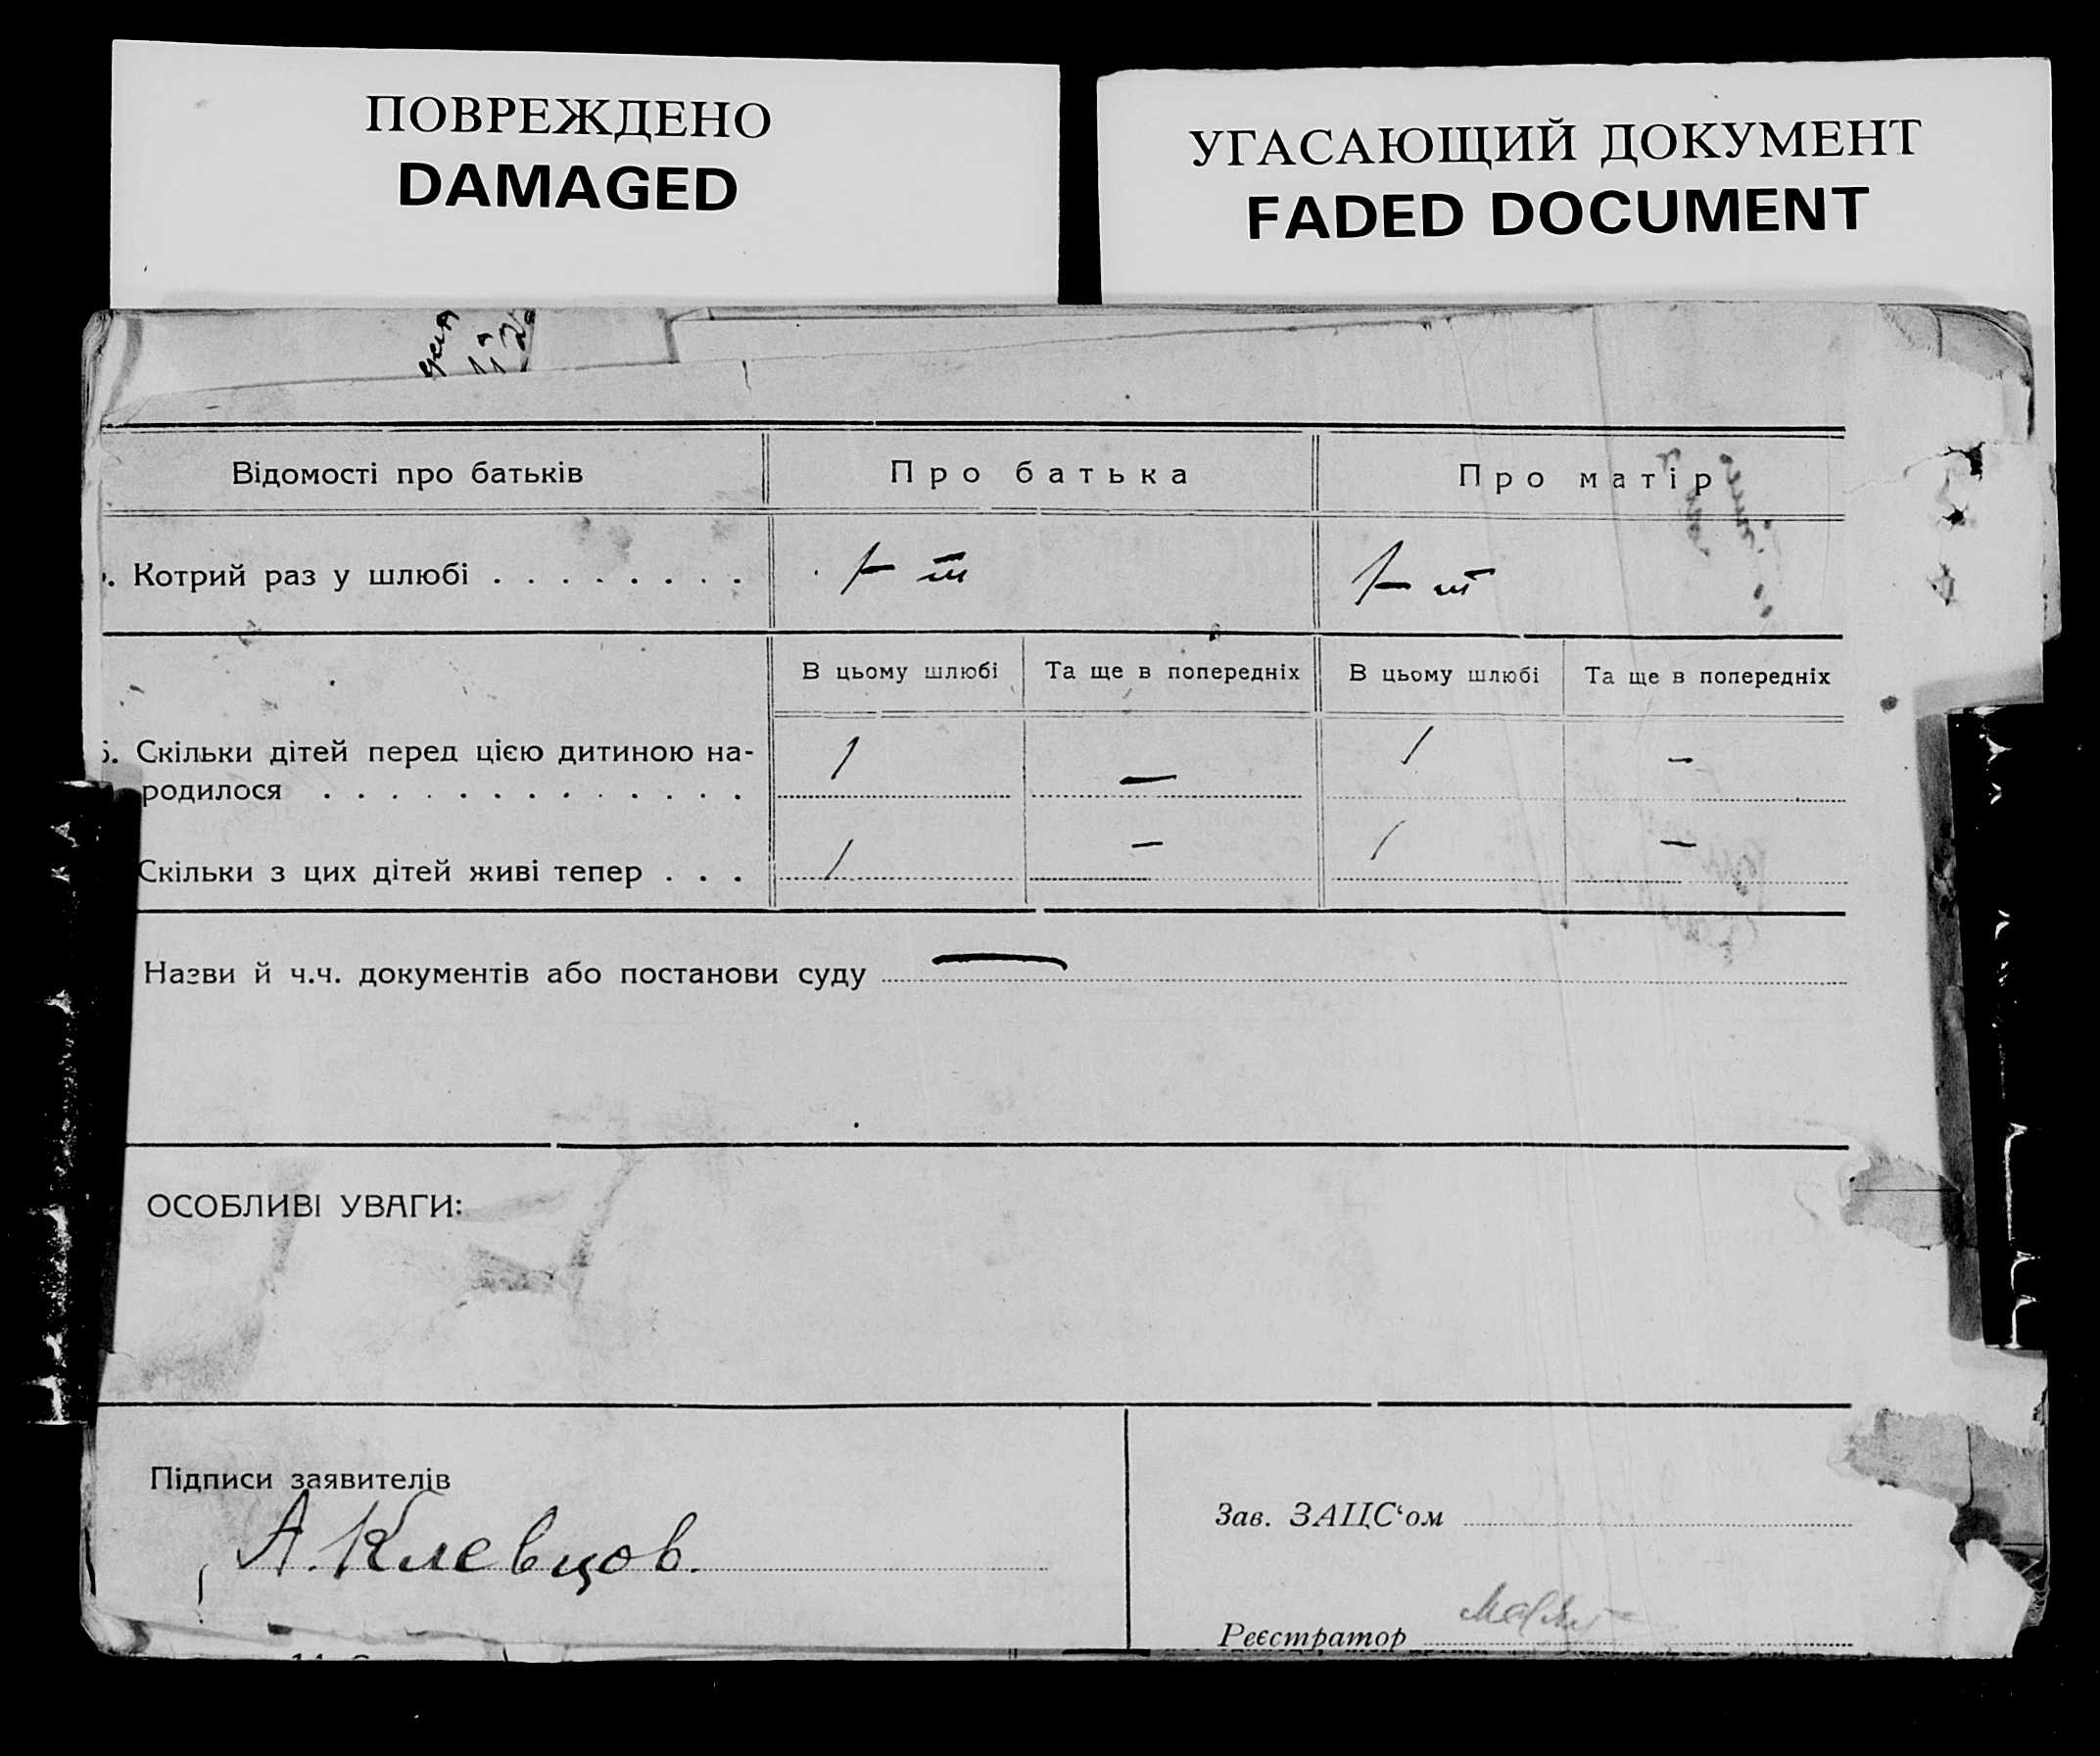 ПОВРЕЖДЕНО
DAMAGED
УГАСАЮЩИЙ ДОКУМЕНТ
FADED DOCUMENT
Відомості про батьків
Про батька
Про матір
Котрий раз у шлюбі . . . . . . . .
1-ш
1-ш
В цьому шлюбі
Та ще в попередніх
В цьому шлюбі
Та ще в попередніх
Скільки дітей перед цією дитиною на-
родилося . . . . . . . . . . . . .
1 — 1 —
Скільки з цих дітей живі тепер . . .
1 — 1 —
Назви й ч.ч. документів або постанови суду —
ОСОБЛИВІ УВАГИ:
Підписи заявителів
А. Клевцов.
Зав. ЗАЦС‘ом
Реєстратор